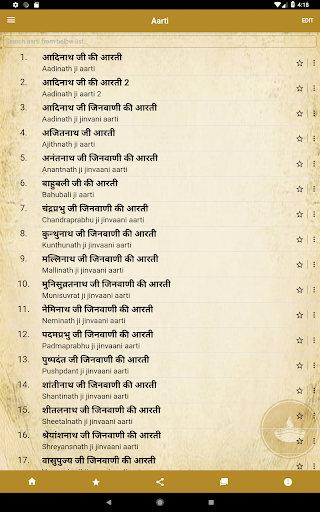 4:18
Aarti
EDIT
Search aarti from below list..
1. आदिनाथ जी की आरती
Aadinath ji aarti
2. आदिनाथ जी की आरती 2
Aadinath ji aarti 2
3. आदिनाथ जी जिनवाणी की आरती
Aadinath ji jinvani aarti
4. अजितनाथ जी की आरती
Ajithnath ji aarti
5. अनंतनाथ जी जिणवाणी की आरती
Anantnath ji jinvaani aarti
6. बाहुबली जी की आरती
Bahubali ji aarti
7. चंद्रप्रभु जी जिनवाणी की आरती
Chandraprabhu ji jinvaani aarti
8. कुन्थुनाथ जी जिनवाणी की आरती
Kunthunath ji jinvaani aarti
9. मल्लिनाथ जी जिनवाणी की आरती
Mallinath ji jinvaani aarti
10. मुनिसुव्रतनाथ जी जिनवाणी की आरती
Munisuvrat ji jinvaani aarti
11. नेमिनाथ जी जिनवाणी की आरती
Neminath ji jinvaani aarti
12. पदमप्रभु जी जिनवाणी की आरती
Padmaprabhu ji jinvaani aarti
13. पुष्पदंत जी जिनवाणी की आरती
Pushpdant ji jinvaani aarti
14. शांतीनाथ जी जिनवाणी की आरती
Shantinath ji jinvaani aarti
15. शीतलनाथ जी जिनवाणी की आरती
Sheetalnath ji jinvaani aarti
16. श्रेयांशनाथ जी जिनवाणी की आरती
Shreyansnath ji jinvaani aarti
17. वासुपुज्य जी जिनवाणी की आरती